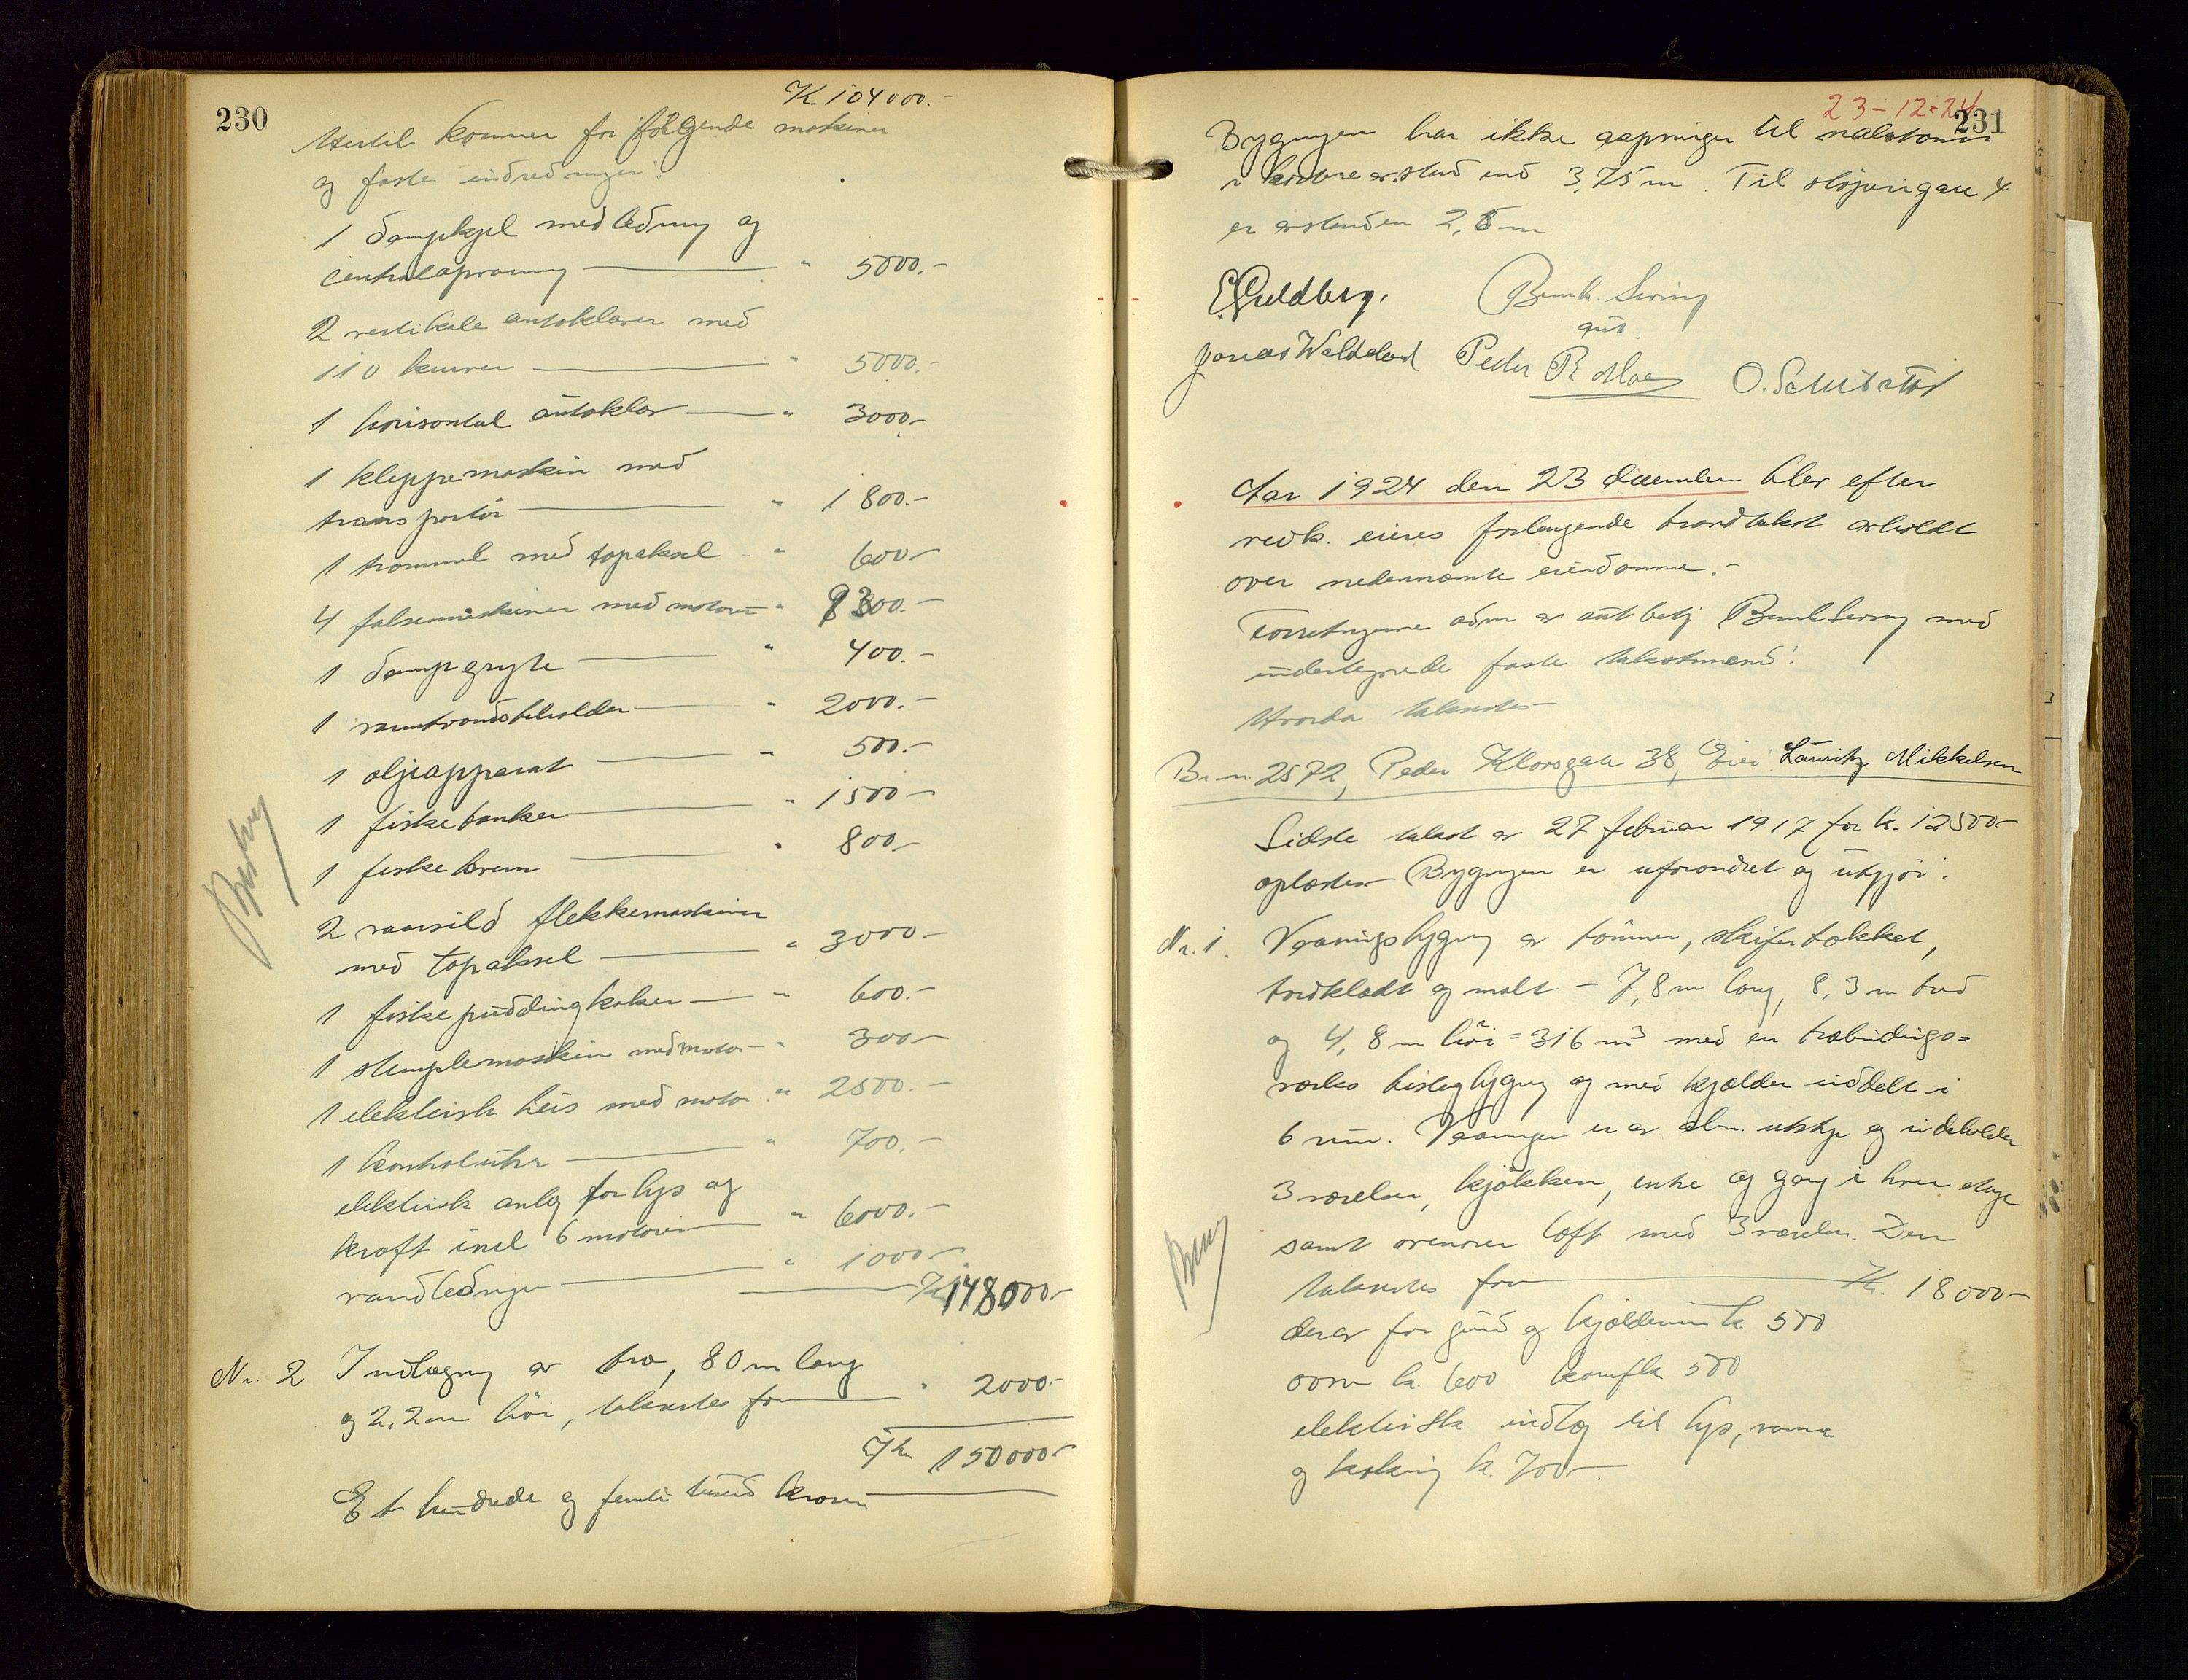 230
K. 104000.-
Hertil kommer for følgende maskiner
og faste indredninger:
1 dampkjel med ledning og
centralopvarming " 5000.-
2 vertikale autoklaver med
110 kurver " 5000.-
1 horisontal autoklav " 3000.-
1 kleppemaskin med
transportör " 1800.-
1 trommel med topaksel " 600.-
4 falsemaskiner med motorer " 9300.-
1 dampgryte " 400.-
1 varmtvandsbeholder " 2000.-
1 oljeapparat " 500.-
1 fisketanker " 1500.-
1 fiskekvern " 800.-
2 vaarsild flekkemaskiner
med topaksel " 3000.-
1 fiskepuddingkoker " 600.-
1 stemplemaskin med motor " 300.-
1 elektrisk heis med motor " 2500.-
1 kontroluhr " 700.-
elektrisk anlæg for lys og
kraft incl 6 motorer " 6000.-
vandledninger " 1000.-
K 148000.-
Nr. 2 Indlægning av træ, 80 m lang
og 2,2 m höi, taksertes for " 2000.-
Kr 150000.-
Et hundrede og femti tusend kroner
23-12-24
231
Bygningen har ikke aapninger til nabotomt
i kortere avstand end 3,75 m. Til Støperigaten 4
er avstanden 2,5 m
E. Guldberg. Bernh. Sering
aut.
Jonas Waldeland Peder R Moe O.
Aar 1924 den 23 december blev efter
vedk. eieres forlangende brandtakst avholdt
over nedennævnte eiendomme.-
Forretningerne adm. av aut betj Bernh Sering med
undertegnede faste takstmænd:
Hvorda takseredes
Br. nr. 2572, Peder Klowsgate 38, Eier Lauritz Mikkelsen
Sidste takst av 27 februar 1917 for k. 12500.-
oplæstes. Bygningen er uforandret og utgjör:
Nr. 1. Vaaningsbygning av tømmer, skifertækket,
bordklædt og malt - 7,8 m lang, 8,3 m bred
og 4,8 m höi = 316 m³ med en træbindings=
verks bislagbygning og med kjælder inddelt i
6 rum. Vaaningen er av alm. utstyr og indeholder
3 værelser, kjøkken, entre og gang i hver etage
samt ovenover loft med 3 værelser. Den
taksertes for K. 18000.-
derav for grund og kjældermur k. 500
ovne k. 600 komfyr 500
elektrisk indlæg til lys, varme
og koking k. 700.-